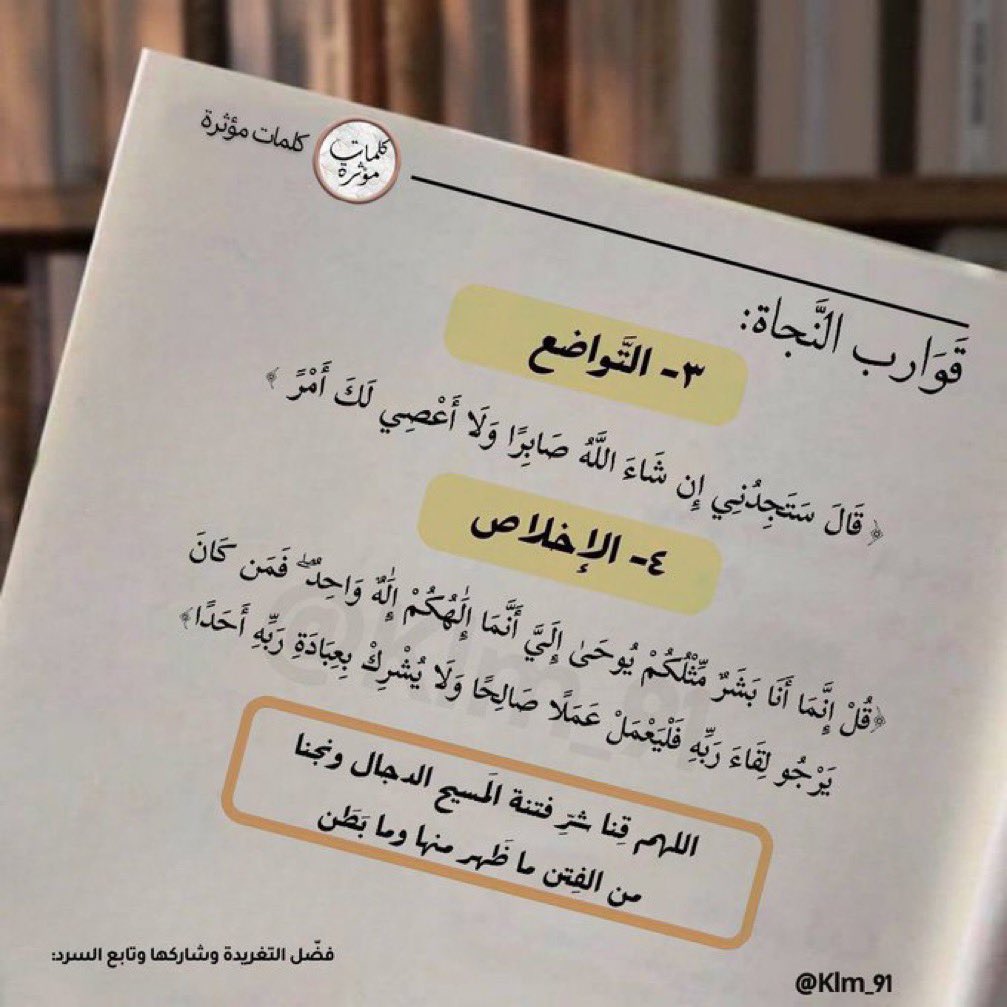 كلمات مؤثرة
كلمات
مؤثرة
قَوَارب النَّجاة:
٣- التَّواضع
﴿ قَالَ سَتَجِدُنِي إِن شَاءَ اللَّهُ صَابِرًا وَلَا أَعْصِي لَكَ أَمْرً ﴾
٤- الإخلاص
﴿قُلْ إِنَّمَا أَنَا بَشَرٌ مِّثْلُكُمْ يُوحَىٰ إِلَيَّ أَنَّمَا إِلَٰهُكُمْ إِلَٰهٌ وَاحِدٌ ۖ فَمَن كَانَ
يَرْجُو لِقَاءَ رَبِّهِ فَلْيَعْمَلْ عَمَلًا صَالِحًا وَلَا يُشْرِكْ بِعِبَادَةِ رَبِّهِ أَحَدًا﴾
@Klm_91
اللهم قِنا شرِّ فتنة المَسيح الدجال ونجنا
من الفِتن ما ظَهر منها وما بَطَن
فضّل التغريدة وشاركها وتابع السرد:
@Klm_91